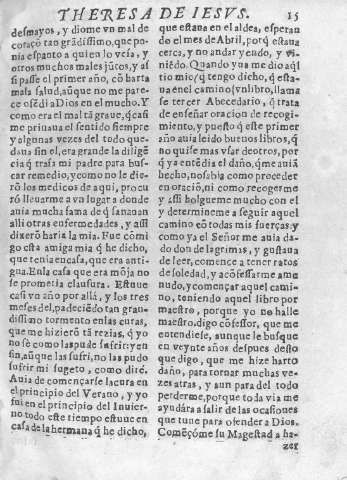 THERESA DE IESVS. 15
desmayos, y diome vn mal de
coraçõ tan grãdissimo, que po-
nia espanto a quien lo veía, y
otros muchos males jũtos, y as
si passe el primer año, cõ harta
mala salud, aũque no me pare-
ce ofẽdi a Dios en el mucho. Y
como era el mal tã graue, q̃ casi
me priuaua el sentido siempre
y algunas vezes del todo que-
daua sin el, era grande la diligẽ
cia q̃ traìa mi padre para bus-
car remedio, y como no le die-
rõ los medicos de aqui, procu
rò lleuarme a vn lugar a donde
auia mucha fama de q̃ sanauan
alli otras enfermedades, y assi
dixerõ haria la mia. Fue cõmi
go esta amiga mia q̃ he dicho,
que tenia en casa, que era anti-
gua. En la casa que era mõja no
se prometia clausura. Estuue
casi vn año por allà, y los tres
meses del, padeciẽdo tan gran-
dissimo tormento en las curas,
que me hizierõ tã rezias, q̃ yo
no sè como las pude sufrir: y en
fin, aũque las sufri, no las pudo
sufrir mi sugeto, como dirè.
Auia de começarse la cura en
el principio del Verano, y yo
fui en el principio del Inuier-
no: todo este tiempo estuue en
casa de la hermana q̃ he dicho,
que estaua en el aldea, esperan
do el mes de Abril, porq̃ estaua
cerca, y no andar yendo, y vi-
niẽdo. Quando yua me dio aq̃l
tio mio (q̃ tengo dicho, q̃ esta-
ua en el camino) vn libro, llama
se tercer Abecedario, q̃ trata
de enseñar oracion de recogi-
miento, y puesto q̃ este primer
año auia leido buenos libros, q̃
no quise mas vsar de otros, por
q̃ ya entẽdia el daño, q̃ me auiã
hecho, no sabia como proceder
en oraciõ, ni como recogerme
y assi holgueme mucho con el
y determineme a seguir aquel
camino cõ todas mis fuerças: y
como ya el Señor me auia da-
do don de lagrimas, y gustaua
de leer, comence a tener ratos
de soledad, y a cõfessarme ame
nudo, y começar aquel cami-
no, teniendo aquel libro por
maestro, porque yo no halle
maestro, digo cõfessor, que me
entendiesse, aunque le busque
en veynte años despues desto
que digo, que me hizo hartò
daño, para tornar muchas ve-
zes atras, y aun para del todo
perderme, porque toda via me
ayudára a salir de las ocasiones
que tuue para ofender a Dios.
Comẽçòme su Magestad a ha-
zer